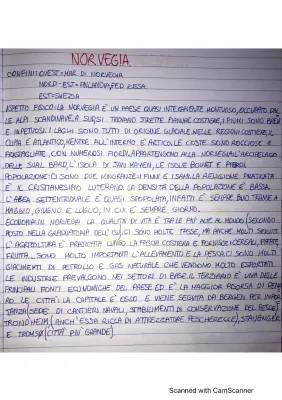 NORVEGIA
CONFINI: OVEST = MAR DI NORVEGIA
NORD-EST = FINLANDIA, FED. RUSSA
EST = SVEZIA
ASPETTO FISICO: LA NORVEGIA È UN PAESE QUASI INTERAMENTE MONTUOSO, OCCUPATO DAL
LE ALPI SCANDINAVE. A SUD SI TROVANO STRETTE PIANURE COSTIERE, I FIUMI SONO BREVI
E IMPETUOSI. I LAGHI SONO TUTTI DI ORIGINE GLACIALE. NELLE REGIONI COSTIERE, IL
CLIMA È ATLANTICO, MENTRE ALL'INTERNO È ARTICO. LE COSTE SONO ROCCIOSE E
FRASTAGLIATE, CON NUMEROSI FIORDI. APPARTENGONO ALLA NORVEGIA: L'ARCHIPELAGO
DELLE SVALBARD, L'ISOLA DI JAN MAYEN, LE ISOLE BOUVET E
POPOLAZIONE: CI SONO DUE MINORANZE: I FINNI E I SAMI. LA RELIGIONE PRATICATA
È IL CRISTIANESIMO LUTERANO. LA DENSITÀ DELLA POPOLAZIONE È BASSA.
L'AREA SETTENTRIONALE È QUASI SPOPOLATA, INFATTI È SEMPRE BUIO TRANNE A
MAGGIO, GIUGNO E LUGLIO, IN CUI È SEMPRE GIORNO.
ECONOMIA: IN NORVEGIA LA QUALITÀ DI VITA È TRA LE PIÙ ALTE AL MONDO (SECONDO
POSTO NELLA GRADUATORIA DELL' CI SONO MOLTE TASSE, MA ANCHE MOLTI SERVIZI.
L'AGRICOLTURA È PRATICATA LUNGO LA FASCIA COSTIERA E FORNISCE: CEREALI, PATATE,
FRUTTA. SONO MOLTO IMPORTANTI L'ALLEVAMENTO E LA PESCA. CI SONO MOLTI
GIACIMENTI DI PETROLIO E GAS NATURALE CHE VENGONO MOLTO ESPORTATI.
LE INDUSTRIE PREVALGONO NEI SETTORI DI BASE. IL TERZIARIO È UNA DELLE
PRINCIPALI FONTI ECONOMICHE DEL PAESE ED È LA MAGGIOR RISORSA DI DENA
RO. LE CITTÀ: LA CAPITALE È OSLO E VIENE SEGUITA DA BERGEN PER IMPOR
TANZA (SEDE DI CANTIERI NAVALI, STABILIMENTI DI CONSERVAZIONE DEL PESCE)
TRONDHEIM (ANCH'ESSA RICCA DI ATTREZZATURE PESCHERECCE), STAVANGER
E TROMSØ (CITTÀ PIÙ GRANDE)
Scanned with CamScanner